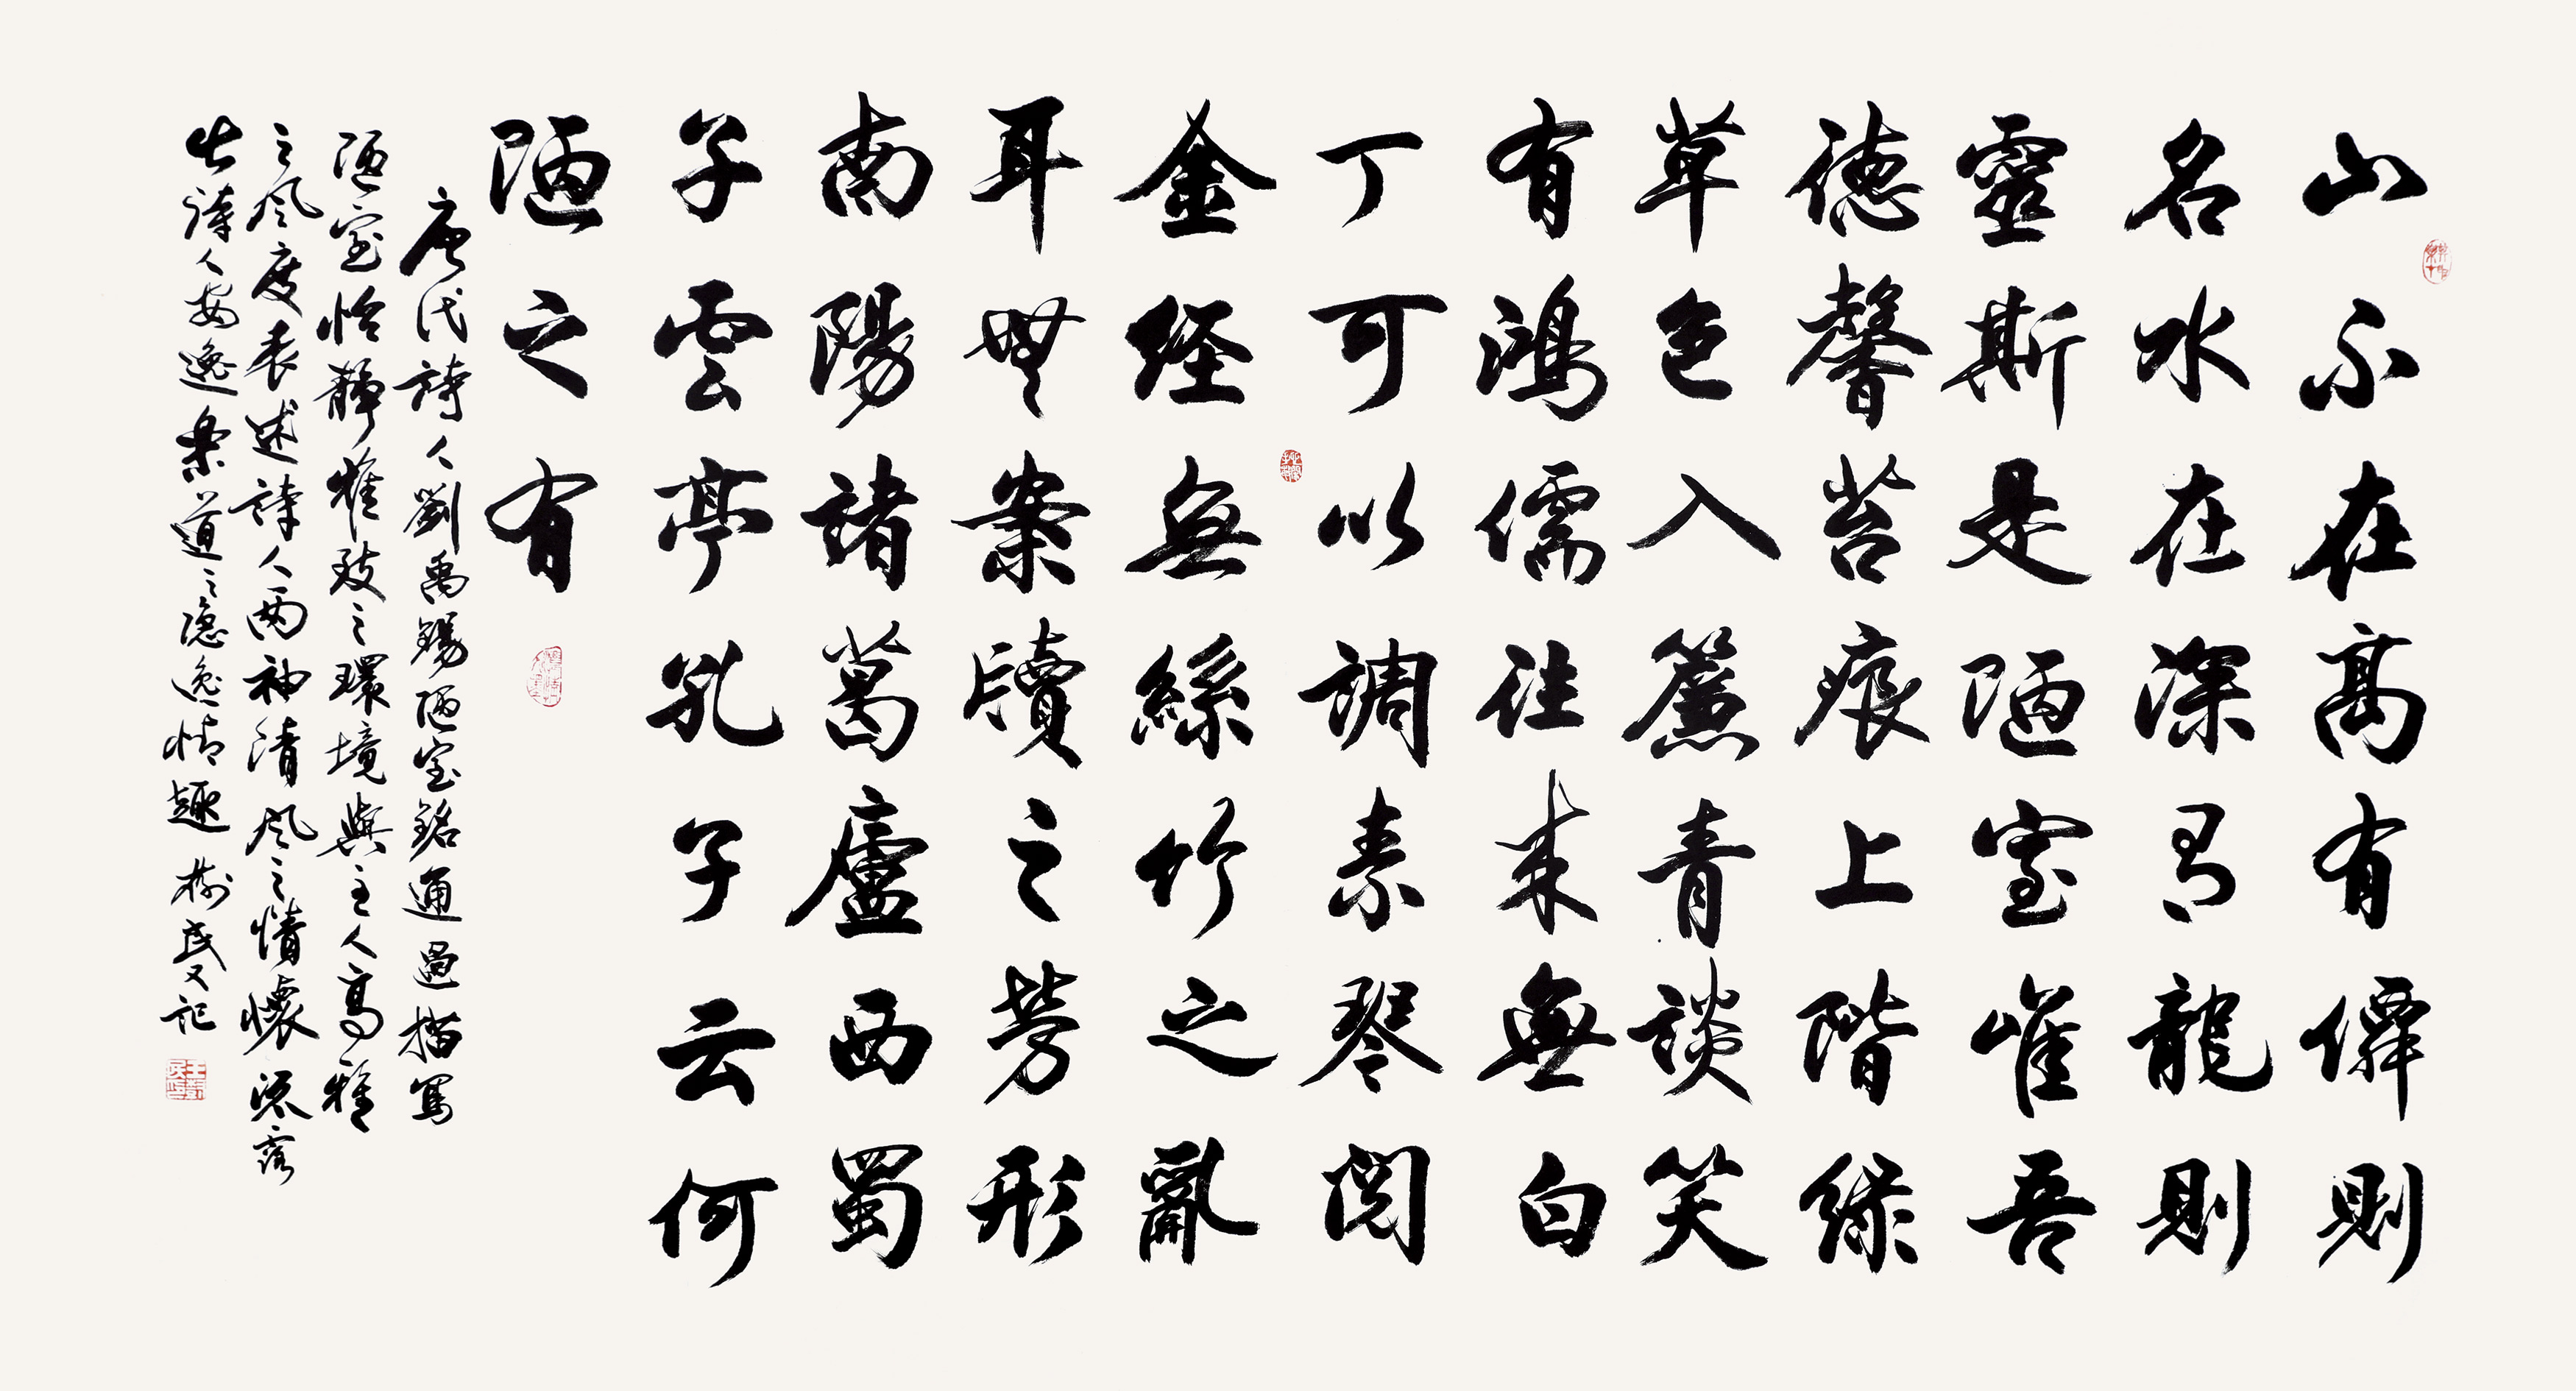 山不在高有僊則
名水在深有龍則
靈斯是陋室唯吾
德馨苔痕上階緑
草色入簾青談笑
有鴻儒往来無白
丁可以調素琴閲
金経無絲竹之亂
耳無案牘之勞形
南陽諸葛廬西蜀
子雲亭孔子云何
陋之有
唐代詩人劉禹錫陋室銘通過描寫
陋室恬靜雅致之環境與主人高雅
之风度表述詩人两袖清风之情懷流露
出詩人安逸樂道之隐逸情趣 樹民又記